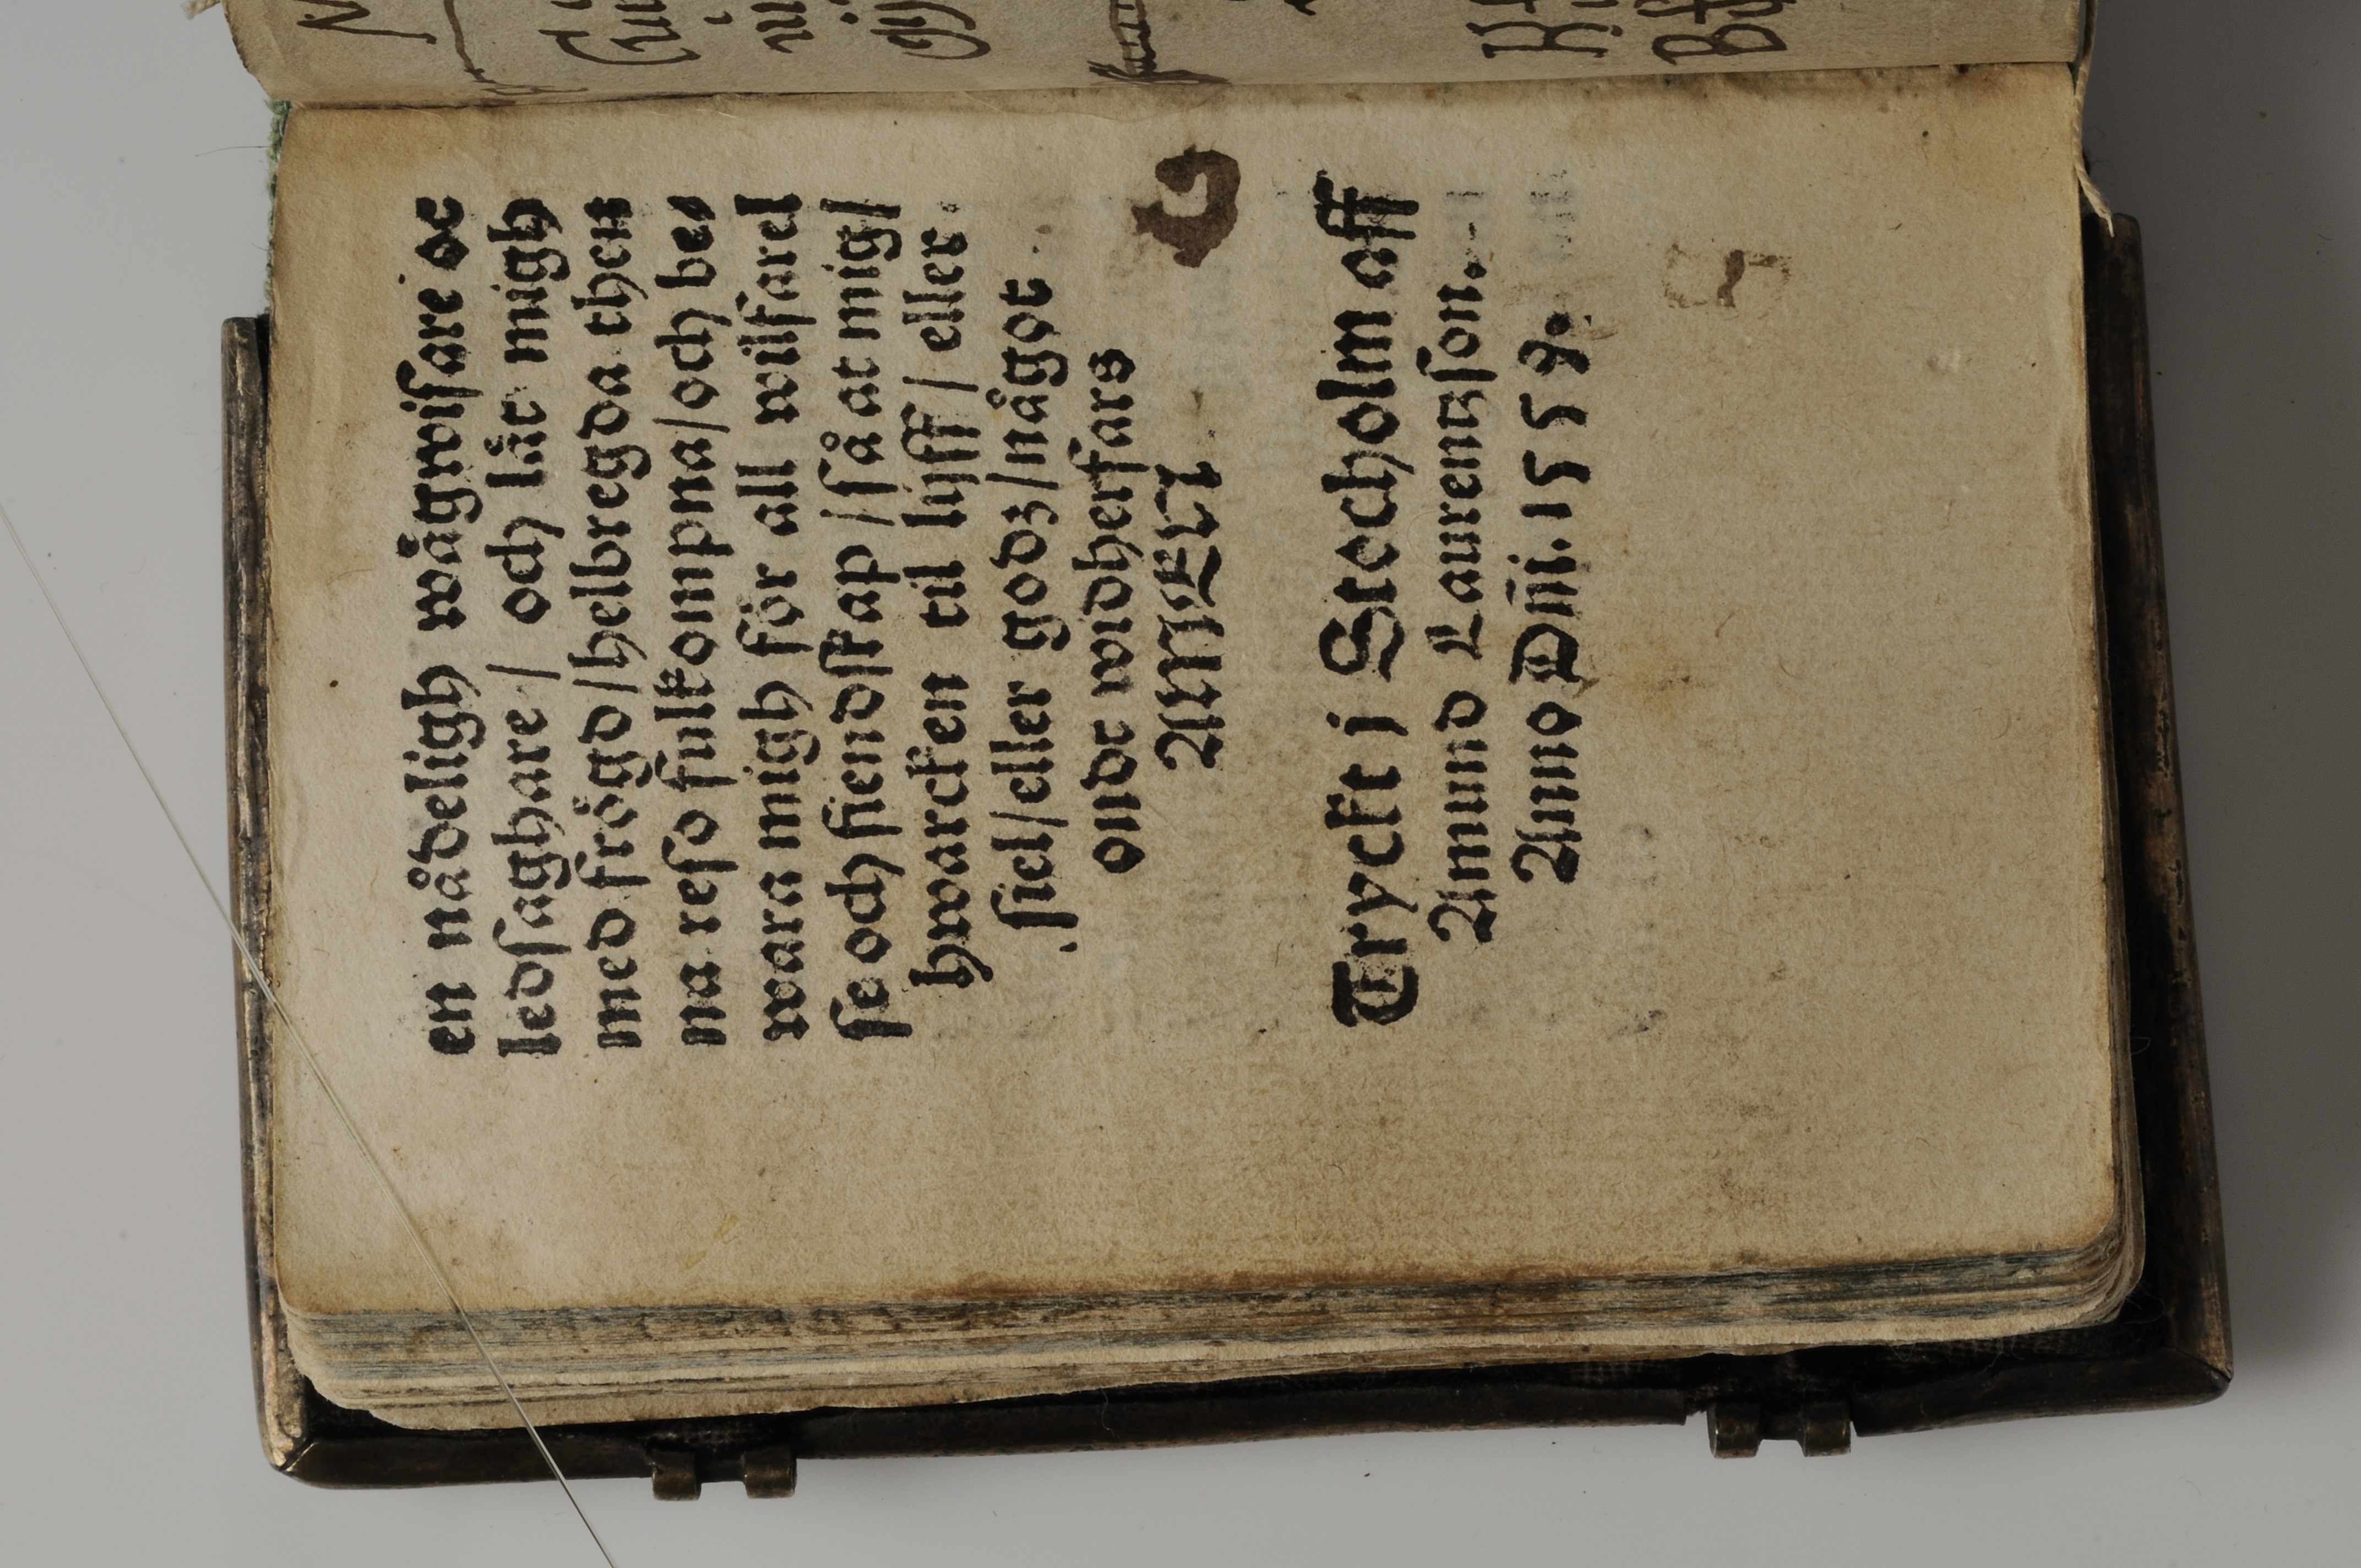 en nådeligh wågwisare oc
ledsaghare / och låt migh
med frögd/helbregda then
na reso fulkompna/och be⸗
wara migh för all wilfarel
se och fiendskap / så at mig/
hwarcken til lijff / eller
siel/eller godz/något
ondt widherfars
AMEN
Tryckt j Stocholm aff
Amund Laurentzson.
Anno Dñi. 1559.